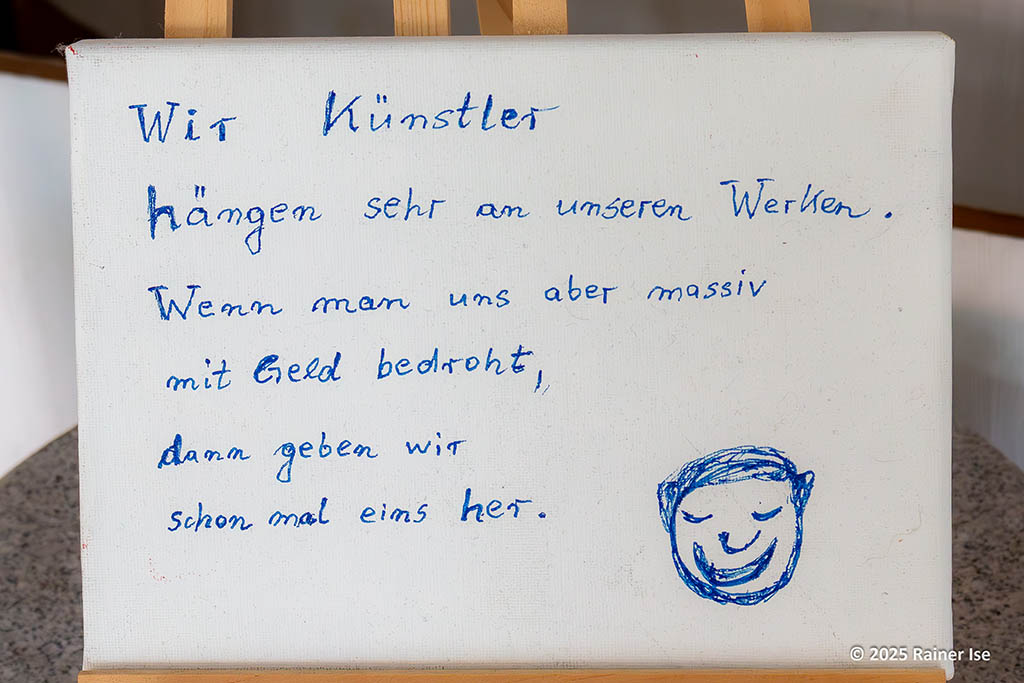 Wir Künstler
hängen sehr an unseren Werken.
Wenn man uns aber massiv
mit Geld bedroht,
dann geben wir
schon mal eins her.
© 2025 Rainer Ise